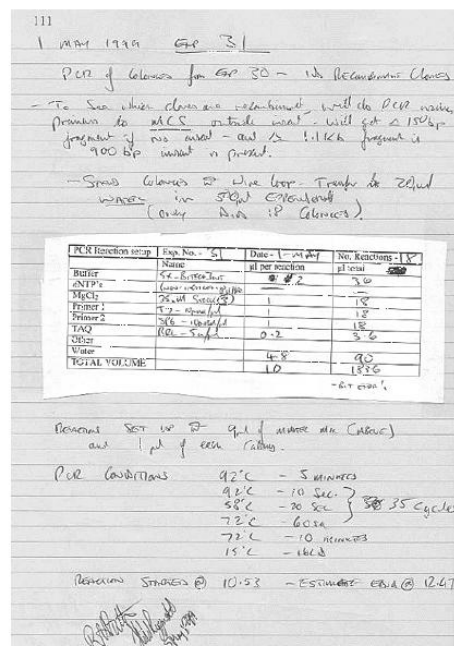 111
1 MAY 1999 EXP 31
PCR of Colonies from EXP 30 - ID Recombinant Clones
- To See which clones are recombinant, will do PCR using
primers to MCS outside insert - will get a 150bp
fragment if no insert - and a 1.1Kb fragment if
900 bp insert is present.
- Colonies wire loop. Transfer to 20µl
WATER in 50µl EPPENDORF
(only 18 Colonies).
PCR Reaction setup Exp. No. - 31 Date - 1-MAY No. Reactions - 18
Name µl per reaction µl total
Buffer 5X - 2 36
dNTP's -
MgCl2 1 18
Primer 1 T7 - 1 18
Primer 2 SP6 - 1 18
TAQ 0.2 3.6
Other
Water 4.8 90
TOTAL VOLUME 10 1836
- BIT EXTRA
REACTIONS SET UP 9µl of MASTER MIX (ABOVE)
and 1µl of each Colony.
PCR CONDITIONS 92°C - 5 MINUTES
92°C - 10 SEC.
58°C - 20 SEC 35 Cycles
72°C - 60 SEC
72°C - 10 MINUTES
15°C - HOLD
REACTION STARTED @ 10.53 - ESTIMATE END @ 12.47